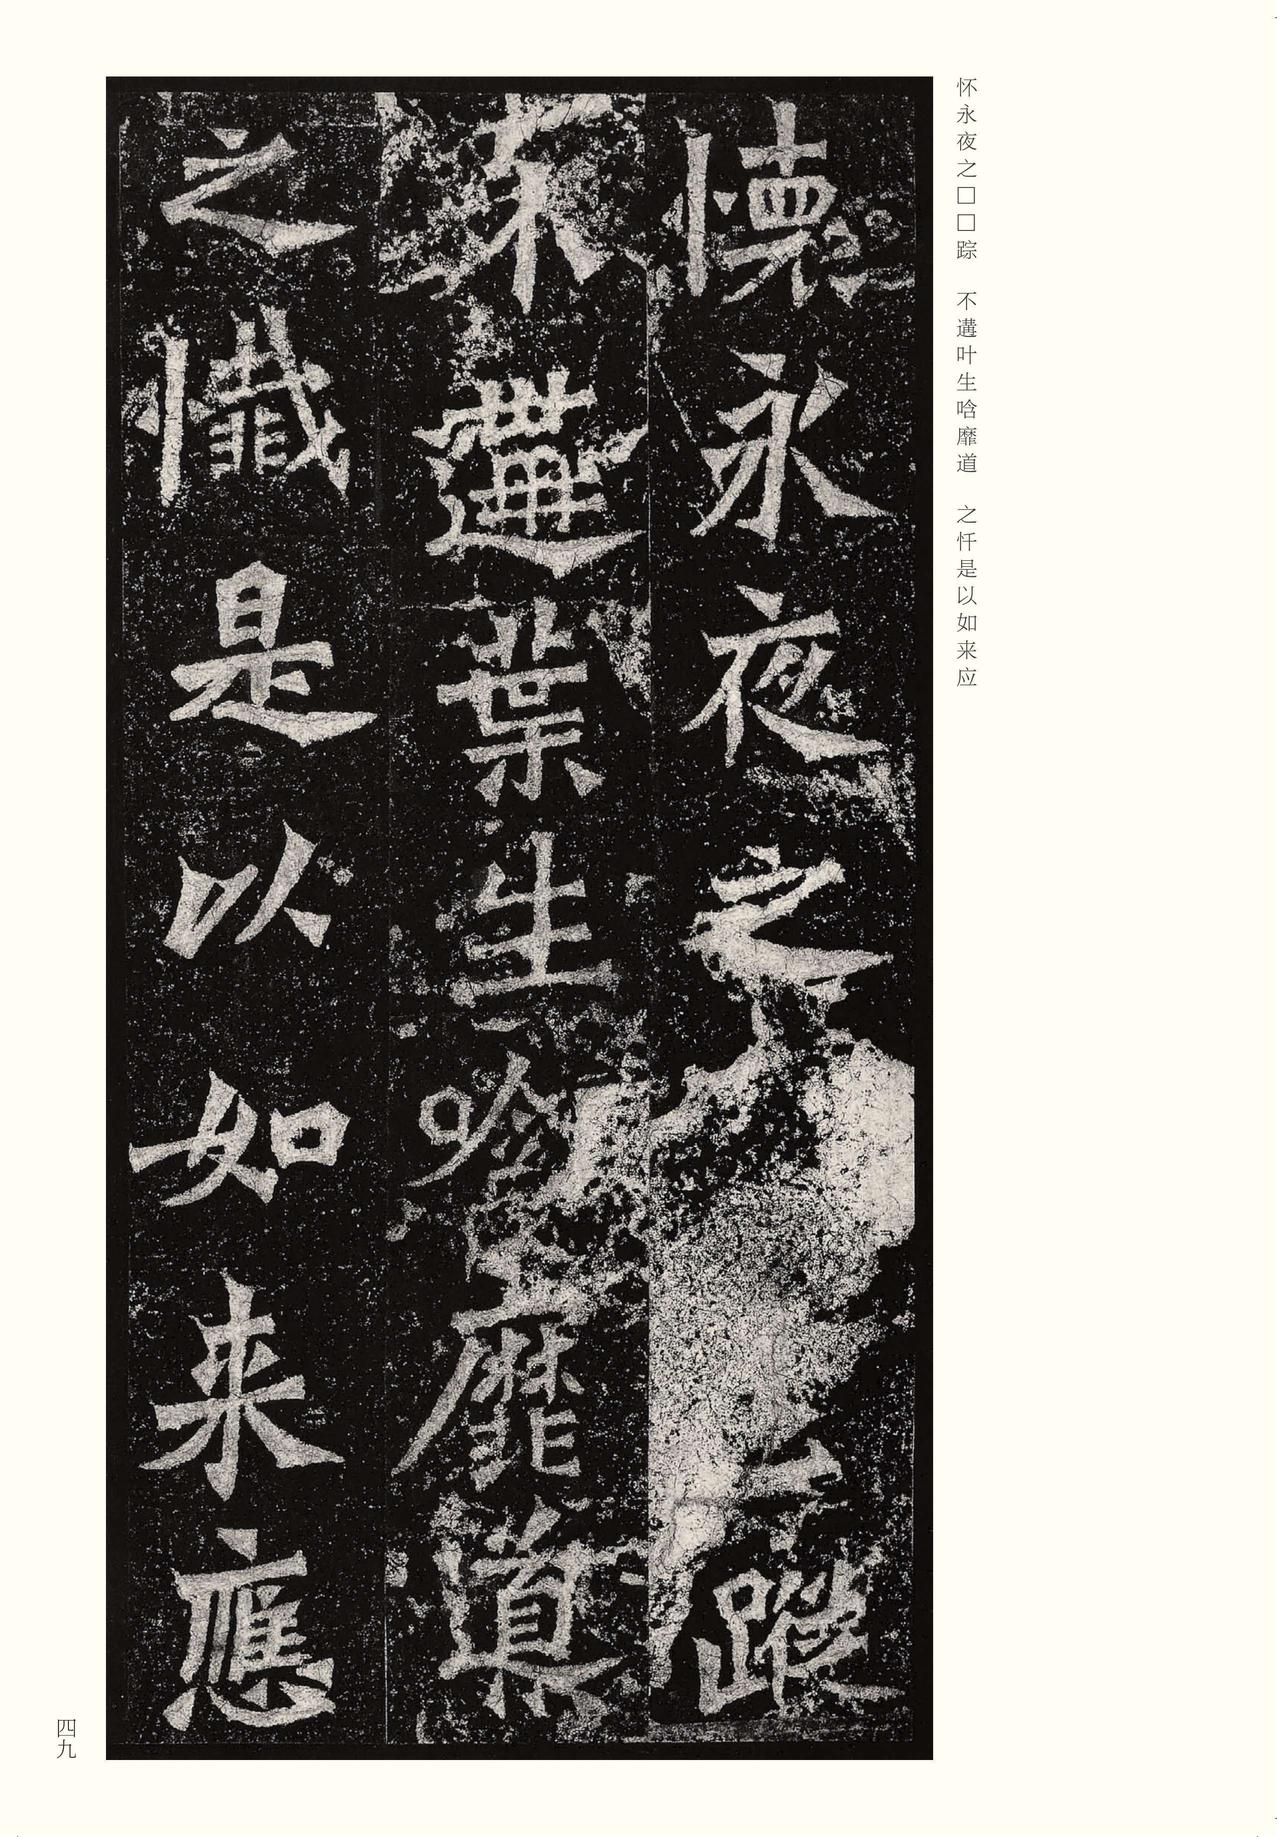 怀永夜之□□踪　不遘叶生唅靡道　之忏是以如来应
懷永夜之蹤
不遘葉生唅靡道
之懺是以如来應
四九